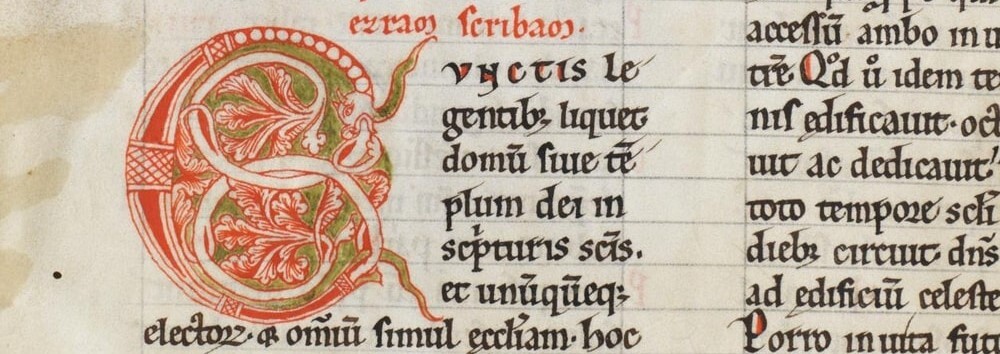 ezram scribam.
CVNCTIS le
gentibꝫ liquet
domū siue tē
plum dei in
scͥpturis scīs.
et unūqūeqꝫ
electoꝝ. & omīū simul eccl̄iam. hoc
accessū ambo in u
tr̄e Qͦd u̾ idem te
nis edificauit. oct
uit ac dedicauit
toto tempore scl̄i
diebꝫ circuit dn̄s
ad edificiū celeste
Porro in uita futu